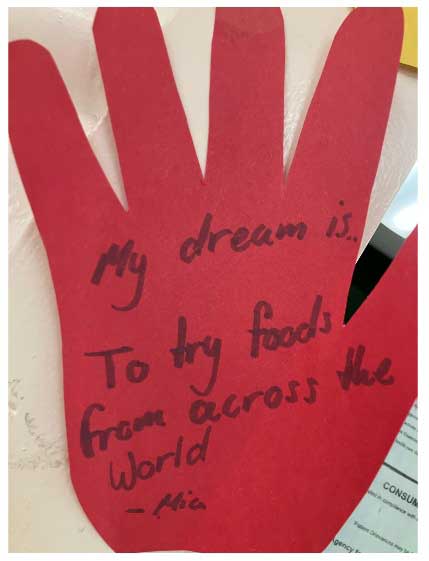 My dream is..
To try foods
from across the
World
- Mia
CONSUM